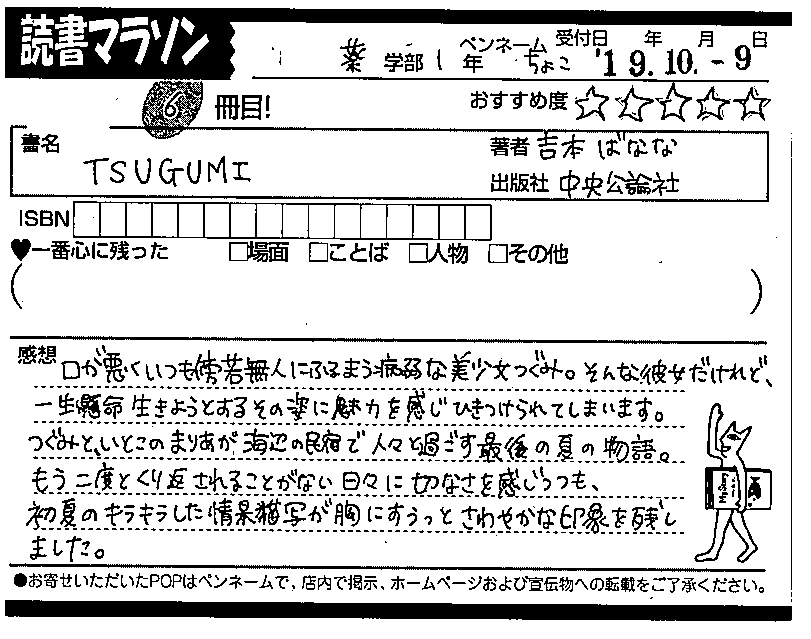 読書マラソン
薬 学部 1 年 ペンネーム ちょこ 受付日 '19.10.-9 年 月 日
6 冊目! おすすめ度 ☆☆☆☆☆
書名 TSUGUMI
著者 吉本 ばなな
出版社 中央公論社
ISBN
♥一番心に残った □場面 □ことば □人物 □その他
( )
感想 口が悪くいつも傍若無人にふるまう病弱な美少女つぐみ。そんな彼女だけれど、
一生懸命生きようとするその姿に魅力を感じひきつけられてしまいます。
つぐみと、いとこのまりあが海辺の民宿で人々と過ごす最後の夏の物語。
もう二度とくり返されることがない日々に切なさを感じつつも、
初夏のキラキラした情景描写が胸にすうっとさわやかな印象を残し
ました。
●お寄せいただいたPOPはペンネームで、店内で掲示、ホームページおよび宣伝物への転載をご了承ください。